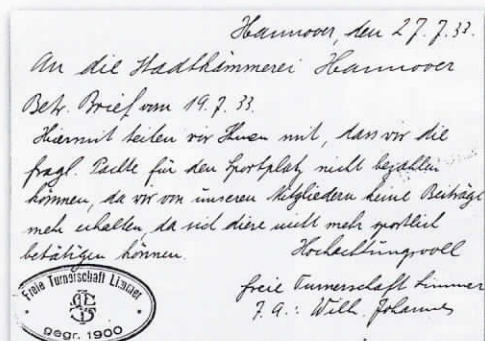 Hannover, den 27.7.33.
An die Stadtkämmerei Hannover
Betr. Brief vom 19.7.33.
Hiermit teilen wir Ihnen mit, dass wir die
fragl. Pachte für den Sportplatz nicht bezahlen
können, da wir von unseren Mitgliedern keine Beiträge
mehr erhalten, da sich diese nicht mehr sportlich
betätigen können.
Hochachtungsvoll
Freie Turnerschaft Limmer
J. A.: Wilh. Johannes
Freie Turnerschaft Limmer
gegr. 1900